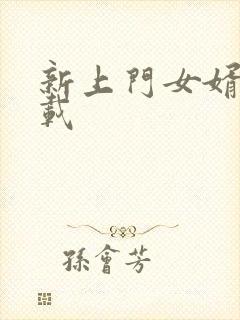 新上門女婿
載
孫會芳